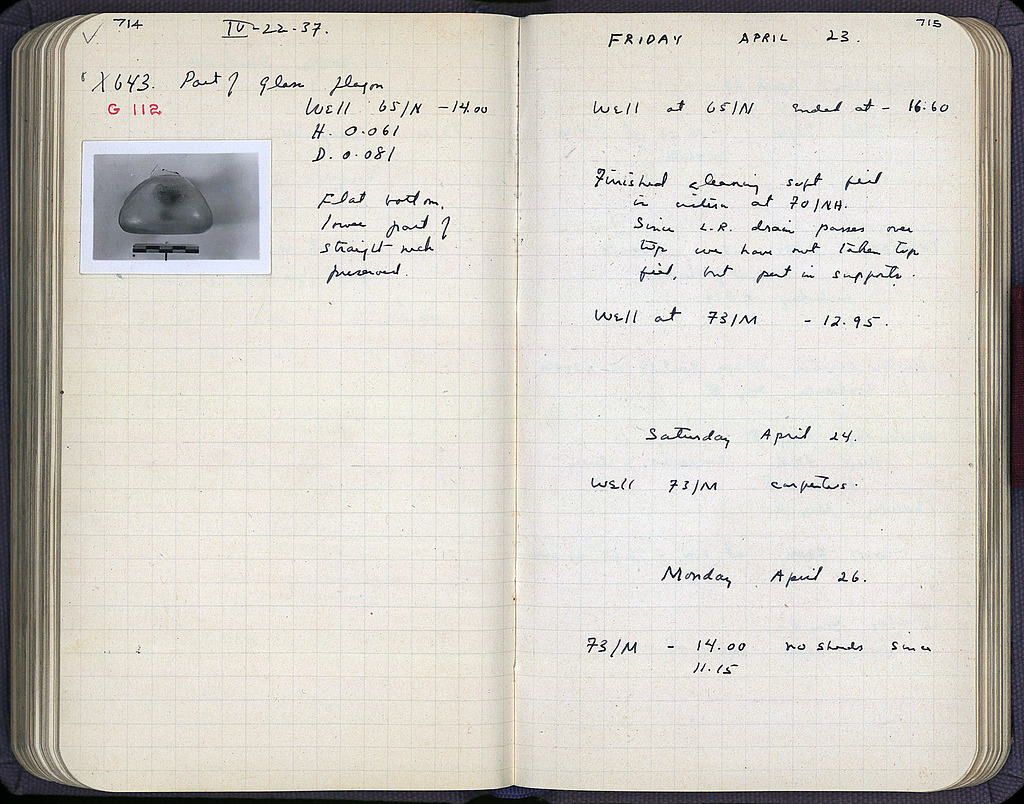 714
IV-22-37.
X643. Part of glass flagon
G 112
Well 65/N -14.00
H. 0.061
D. 0.081
Flat bottom,
lower part of
straight neck
preserved.
715
FRIDAY APRIL 23.
Well at 65/N ended at - 16.60
Finished cleaning soft fill
in cistern at 70/NH.
Since L.R. drain passes over
top we have not taken top
fill, but put in supports.
Well at 73/M - 12.95.
Saturday April 24.
Well 73/M carpenters.
Monday April 26.
73/M - 14.00 no sherds since
11.15